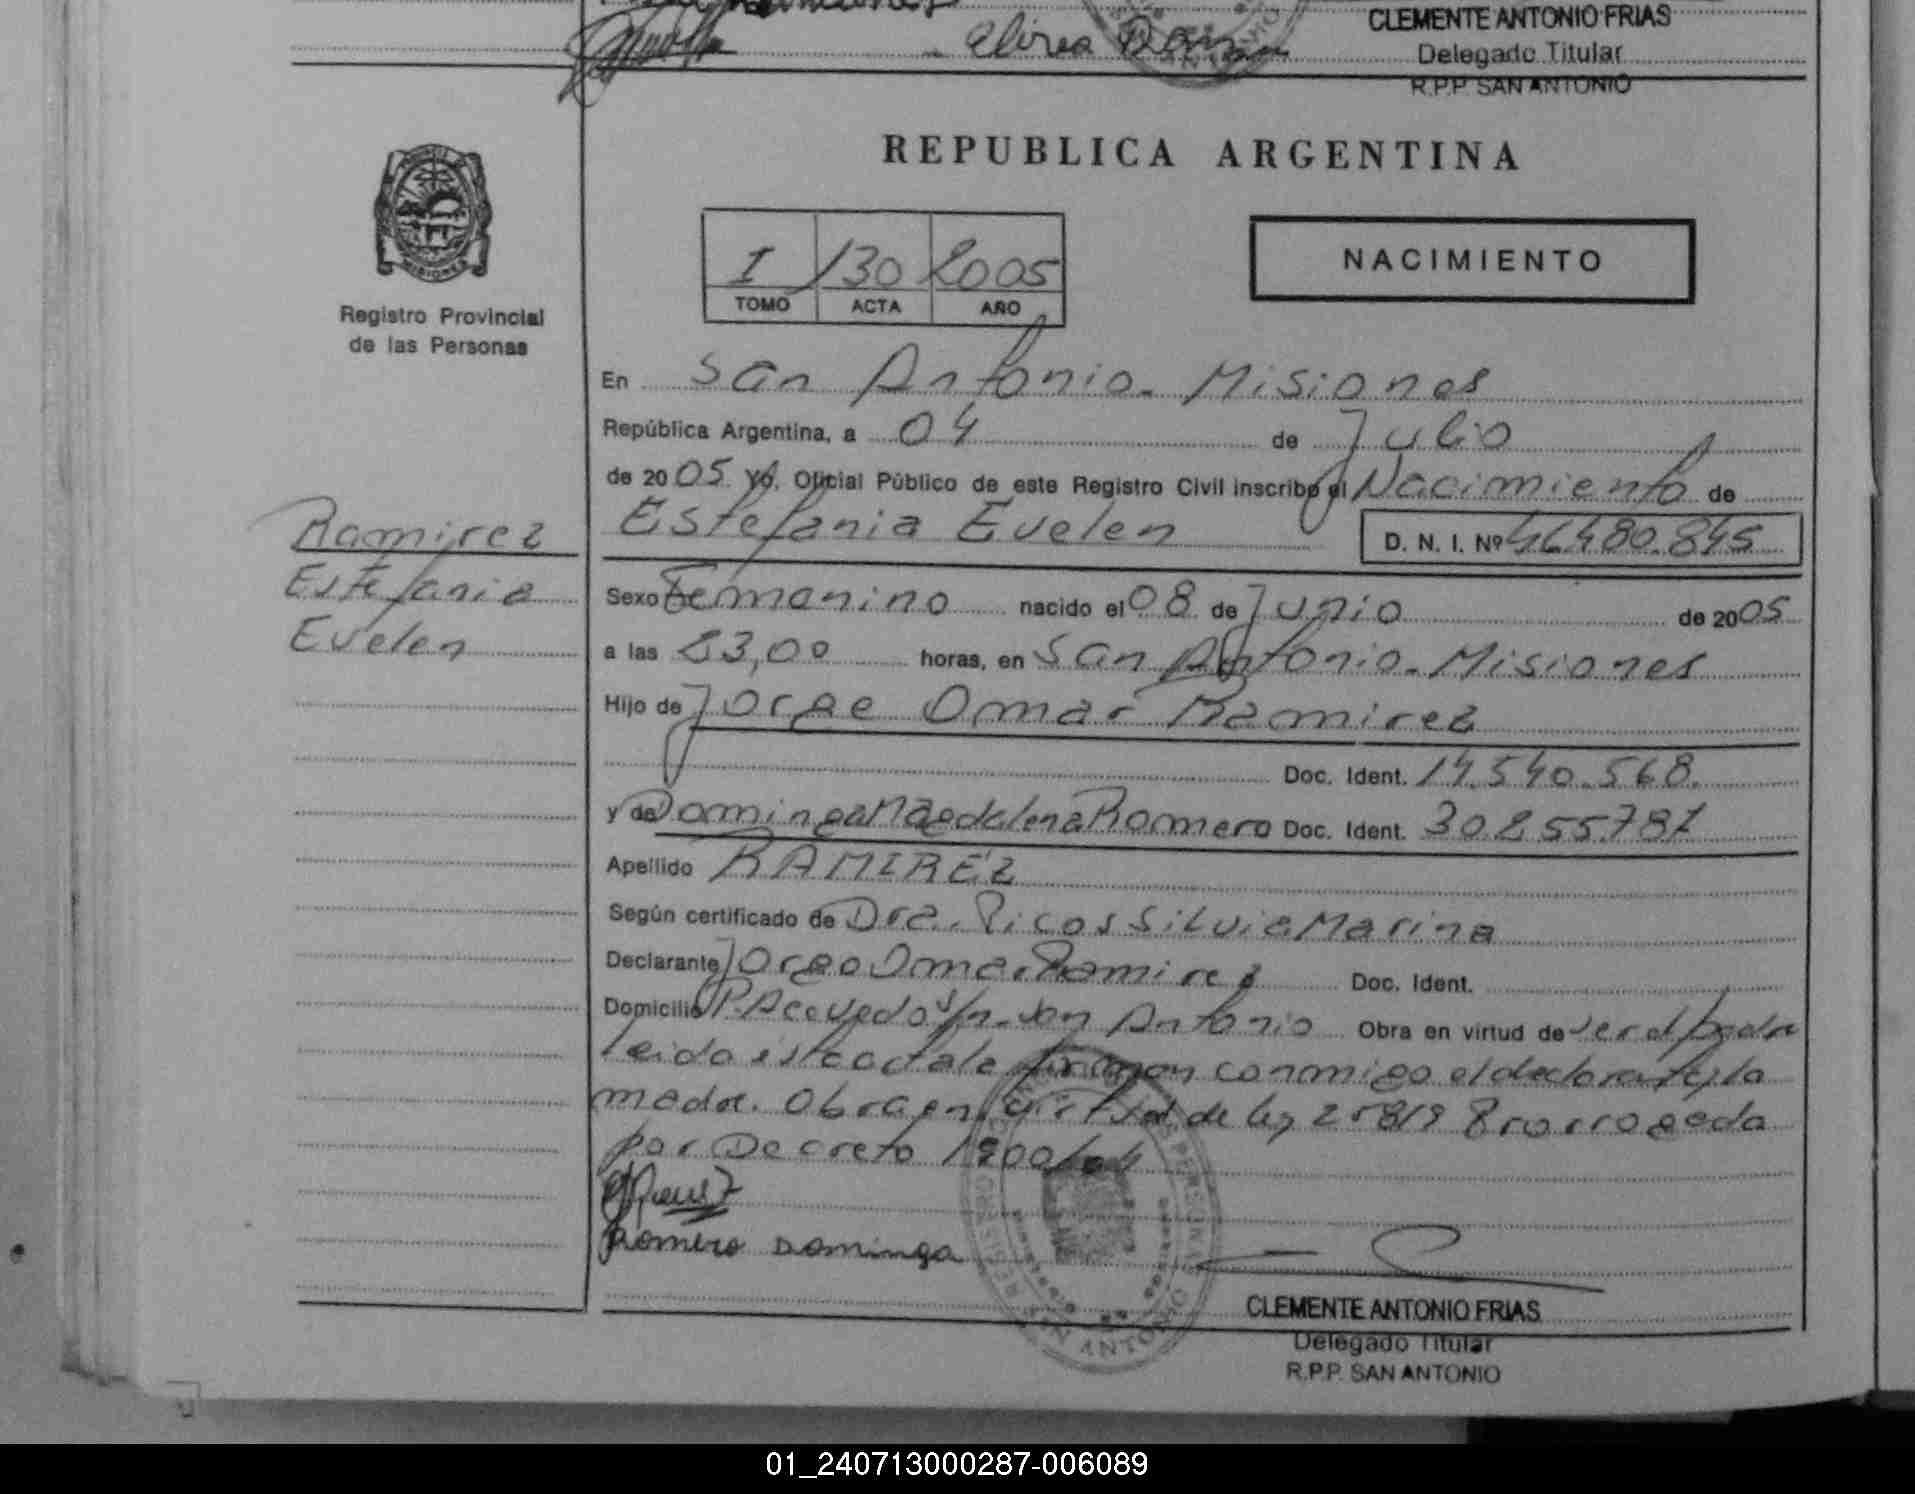 Elirea
CLEMENTE ANTONIO FRIAS
Delegado Titular
R.P.P. SAN ANTONIO
REPUBLICA ARGENTINA
MISIONES
Registro Provincial
de las Personas
I 130 2005
TOMO ACTA AÑO
NACIMIENTO
En San Antonio - Misiones
República Argentina, a 04 de Julio
de 2005. Yo, Oficial Público de este Registro Civil inscribo el Nacimiento de
Estefania Evelen D. N. I. Nº 46.480.845
Ramirez
Estefania
Evelen
Sexo Femenino nacido el 08 de Junio de 2005
a las 23,00 horas, en San Antonio - Misiones
Hijo de Jorge Omar Ramirez
Doc. Ident. 14.540.568.
y de Dominga Magdalena Romero Doc. Ident. 30.255.787
Apellido RAMIREZ
Según certificado de Dra. Picos Silvia Marina
Declarante Jorge Omar Ramirez Doc. Ident.
Domicilio P. Acevedo s/n - San Antonio Obra en virtud de ser el padre
leida esta acta la firman conmigo el declarante y la
madre. Obra en virtud de ley 25819 Prorrogada
por Decreto 1900/04
Romero Dominga
REGISTRO PERSONAS
SAN ANTONIO
CLEMENTE ANTONIO FRIAS
Delegado Titular
R.P.P. SAN ANTONIO
01_240713000287-006089